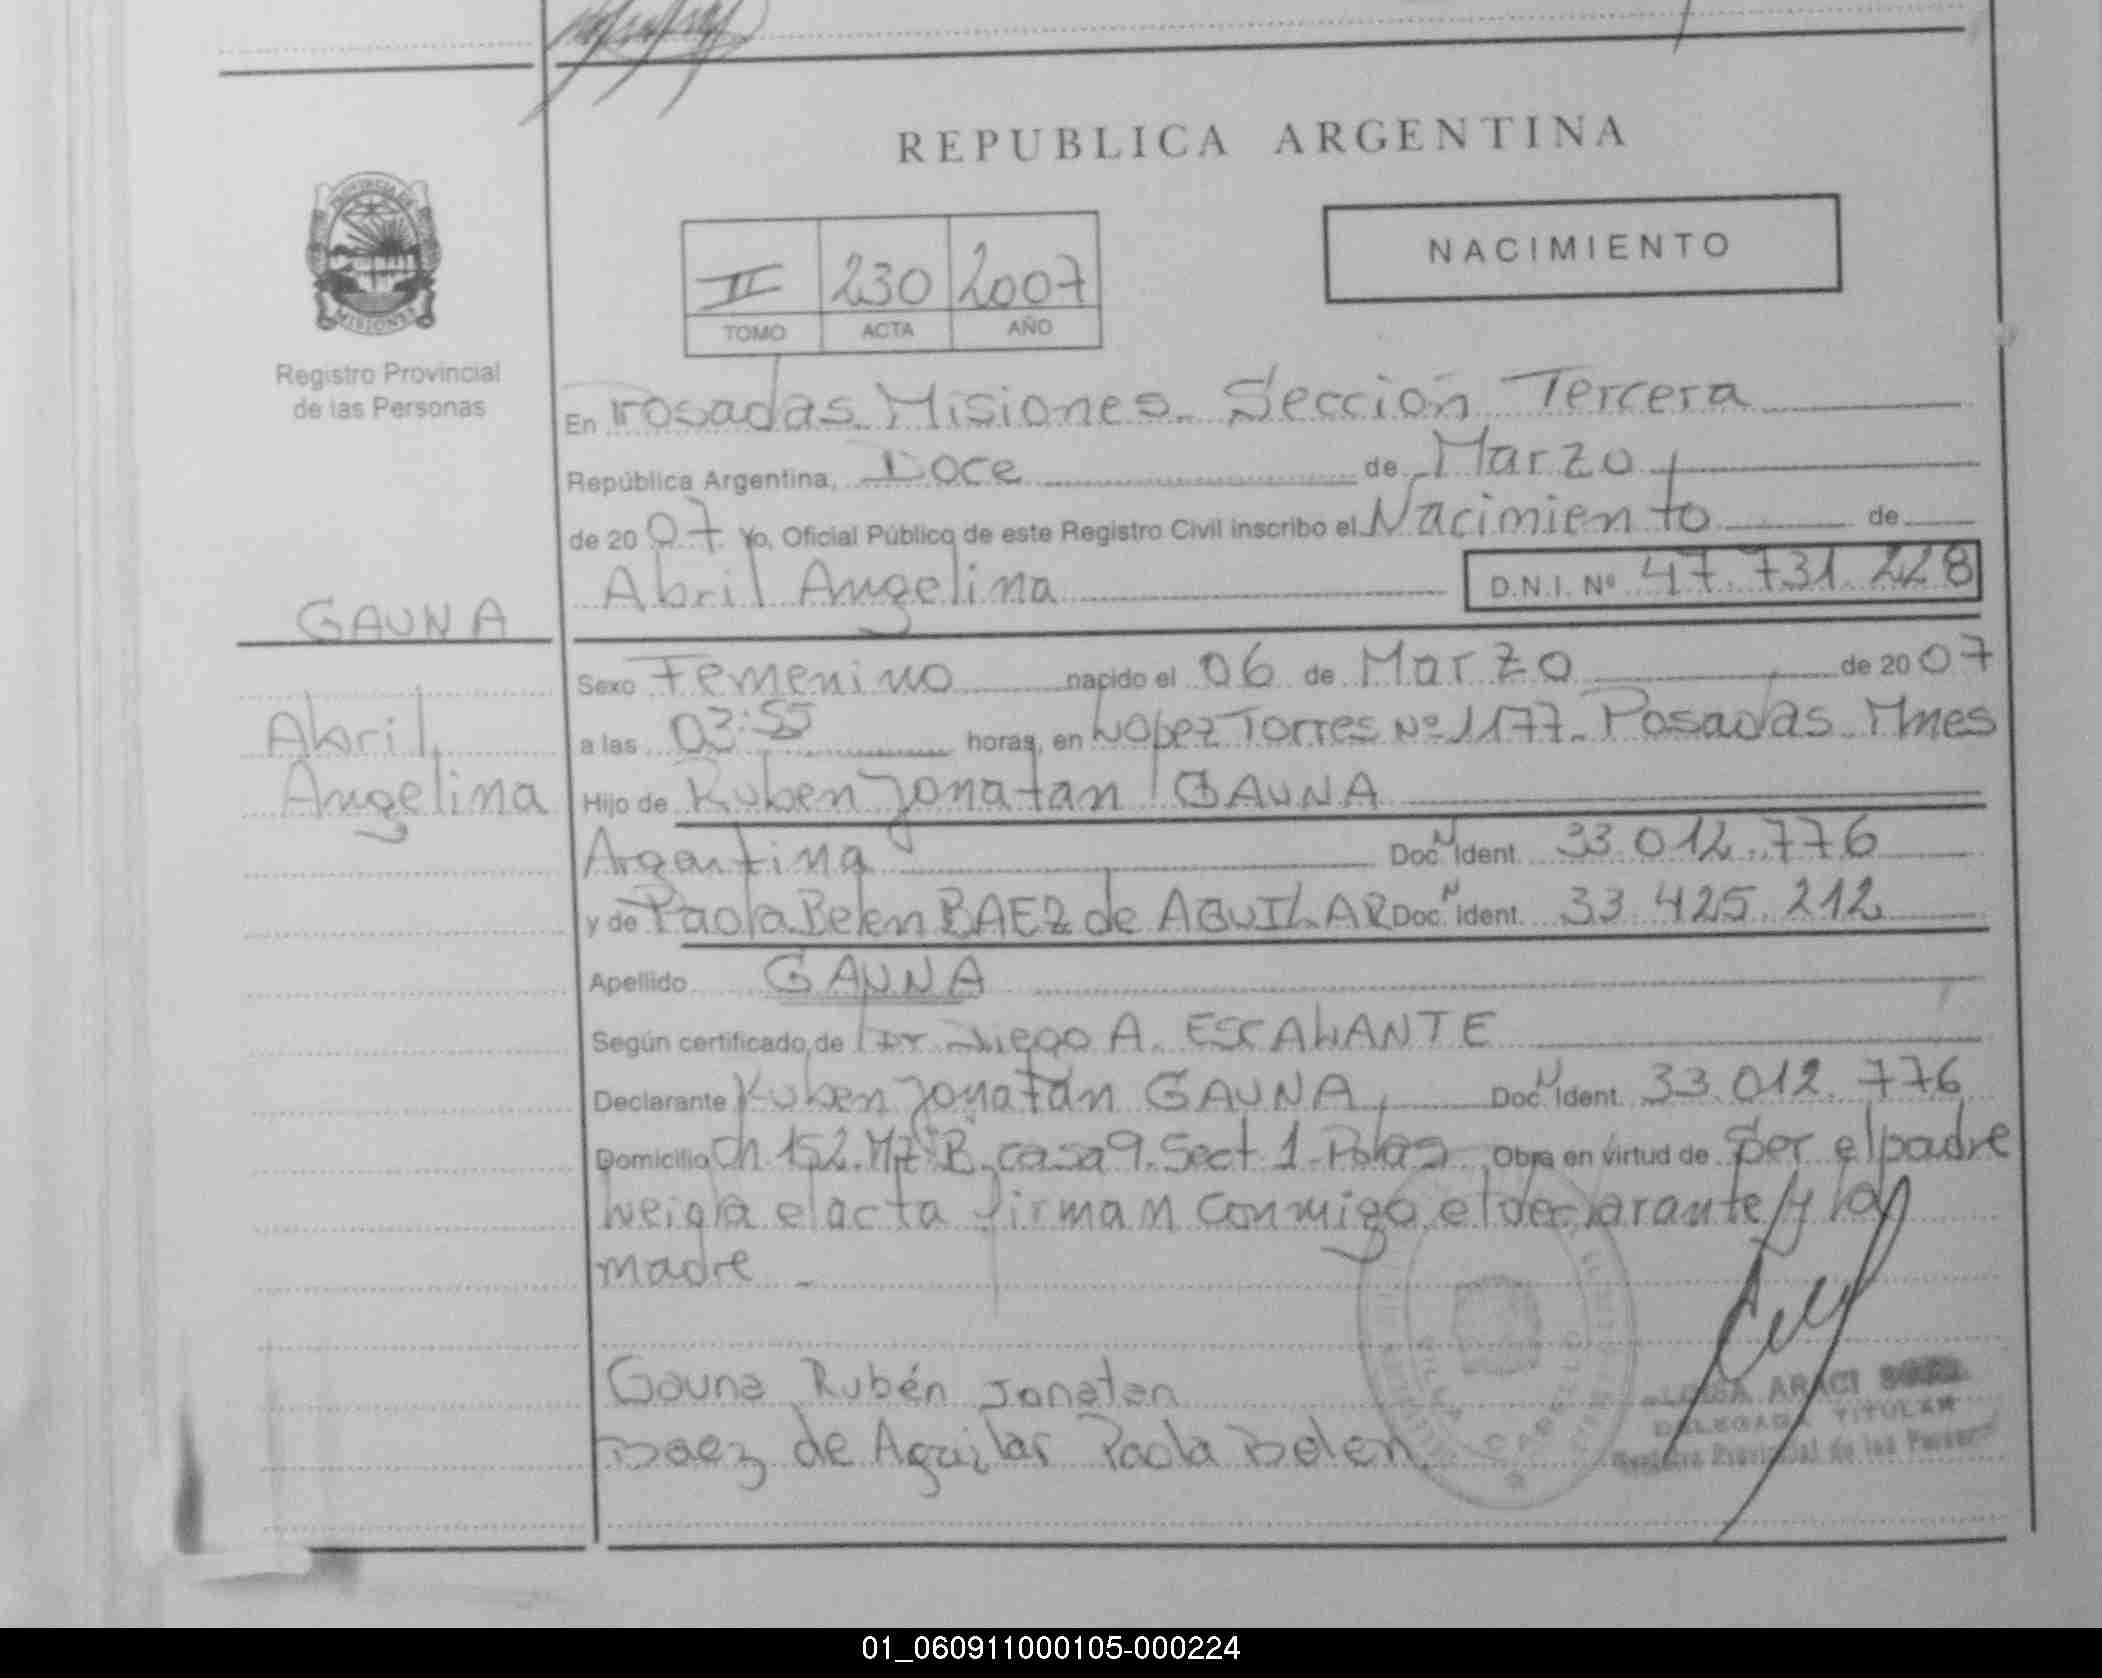 REPUBLICA ARGENTINA
NACIMIENTO
II 230 2007
TOMO ACTA AÑO
PROVINCIA DE
MISIONES
Registro Provincial
de las Personas
En Posadas Misiones. Sección Tercera
República Argentina, Doce de Marzo
de 20 07 Yo, Oficial Público de este Registro Civil inscribo el Nacimiento de
Abril Angelina D.N.I. Nº 47.731.228
GAUNA
Abril
Angelina
Sexo Femenino nacido el 06 de Marzo de 20 07
a las 03:55 horas, en Lopez Torres Nº 1177. Posadas Mnes
Hijo de Ruben Jonatan GAUNA
Argentina Doc. N Ident. 33.012.776
y de Paola Belen BAEZ de AGUILAR Doc. N Ident. 33.425.212
Apellido GAUNA
Según certificado de Dr Diego A. ESCALANTE
Declarante Ruben Jonatan GAUNA, Doc. N Ident. 33.012.776
Domicilio Ch 152. Mz "B", casa 9. Sect 1 - Pdas Obra en virtud de Ser el padre
Leida el acta firman conmigo el declarante y la
madre -
Gauna Rubén Jonatan
Baez de Aguilar Paola Belen
ARACI
DELEGADA TITULAR
Registro Provincial de las Personas
01_060911000105-000224